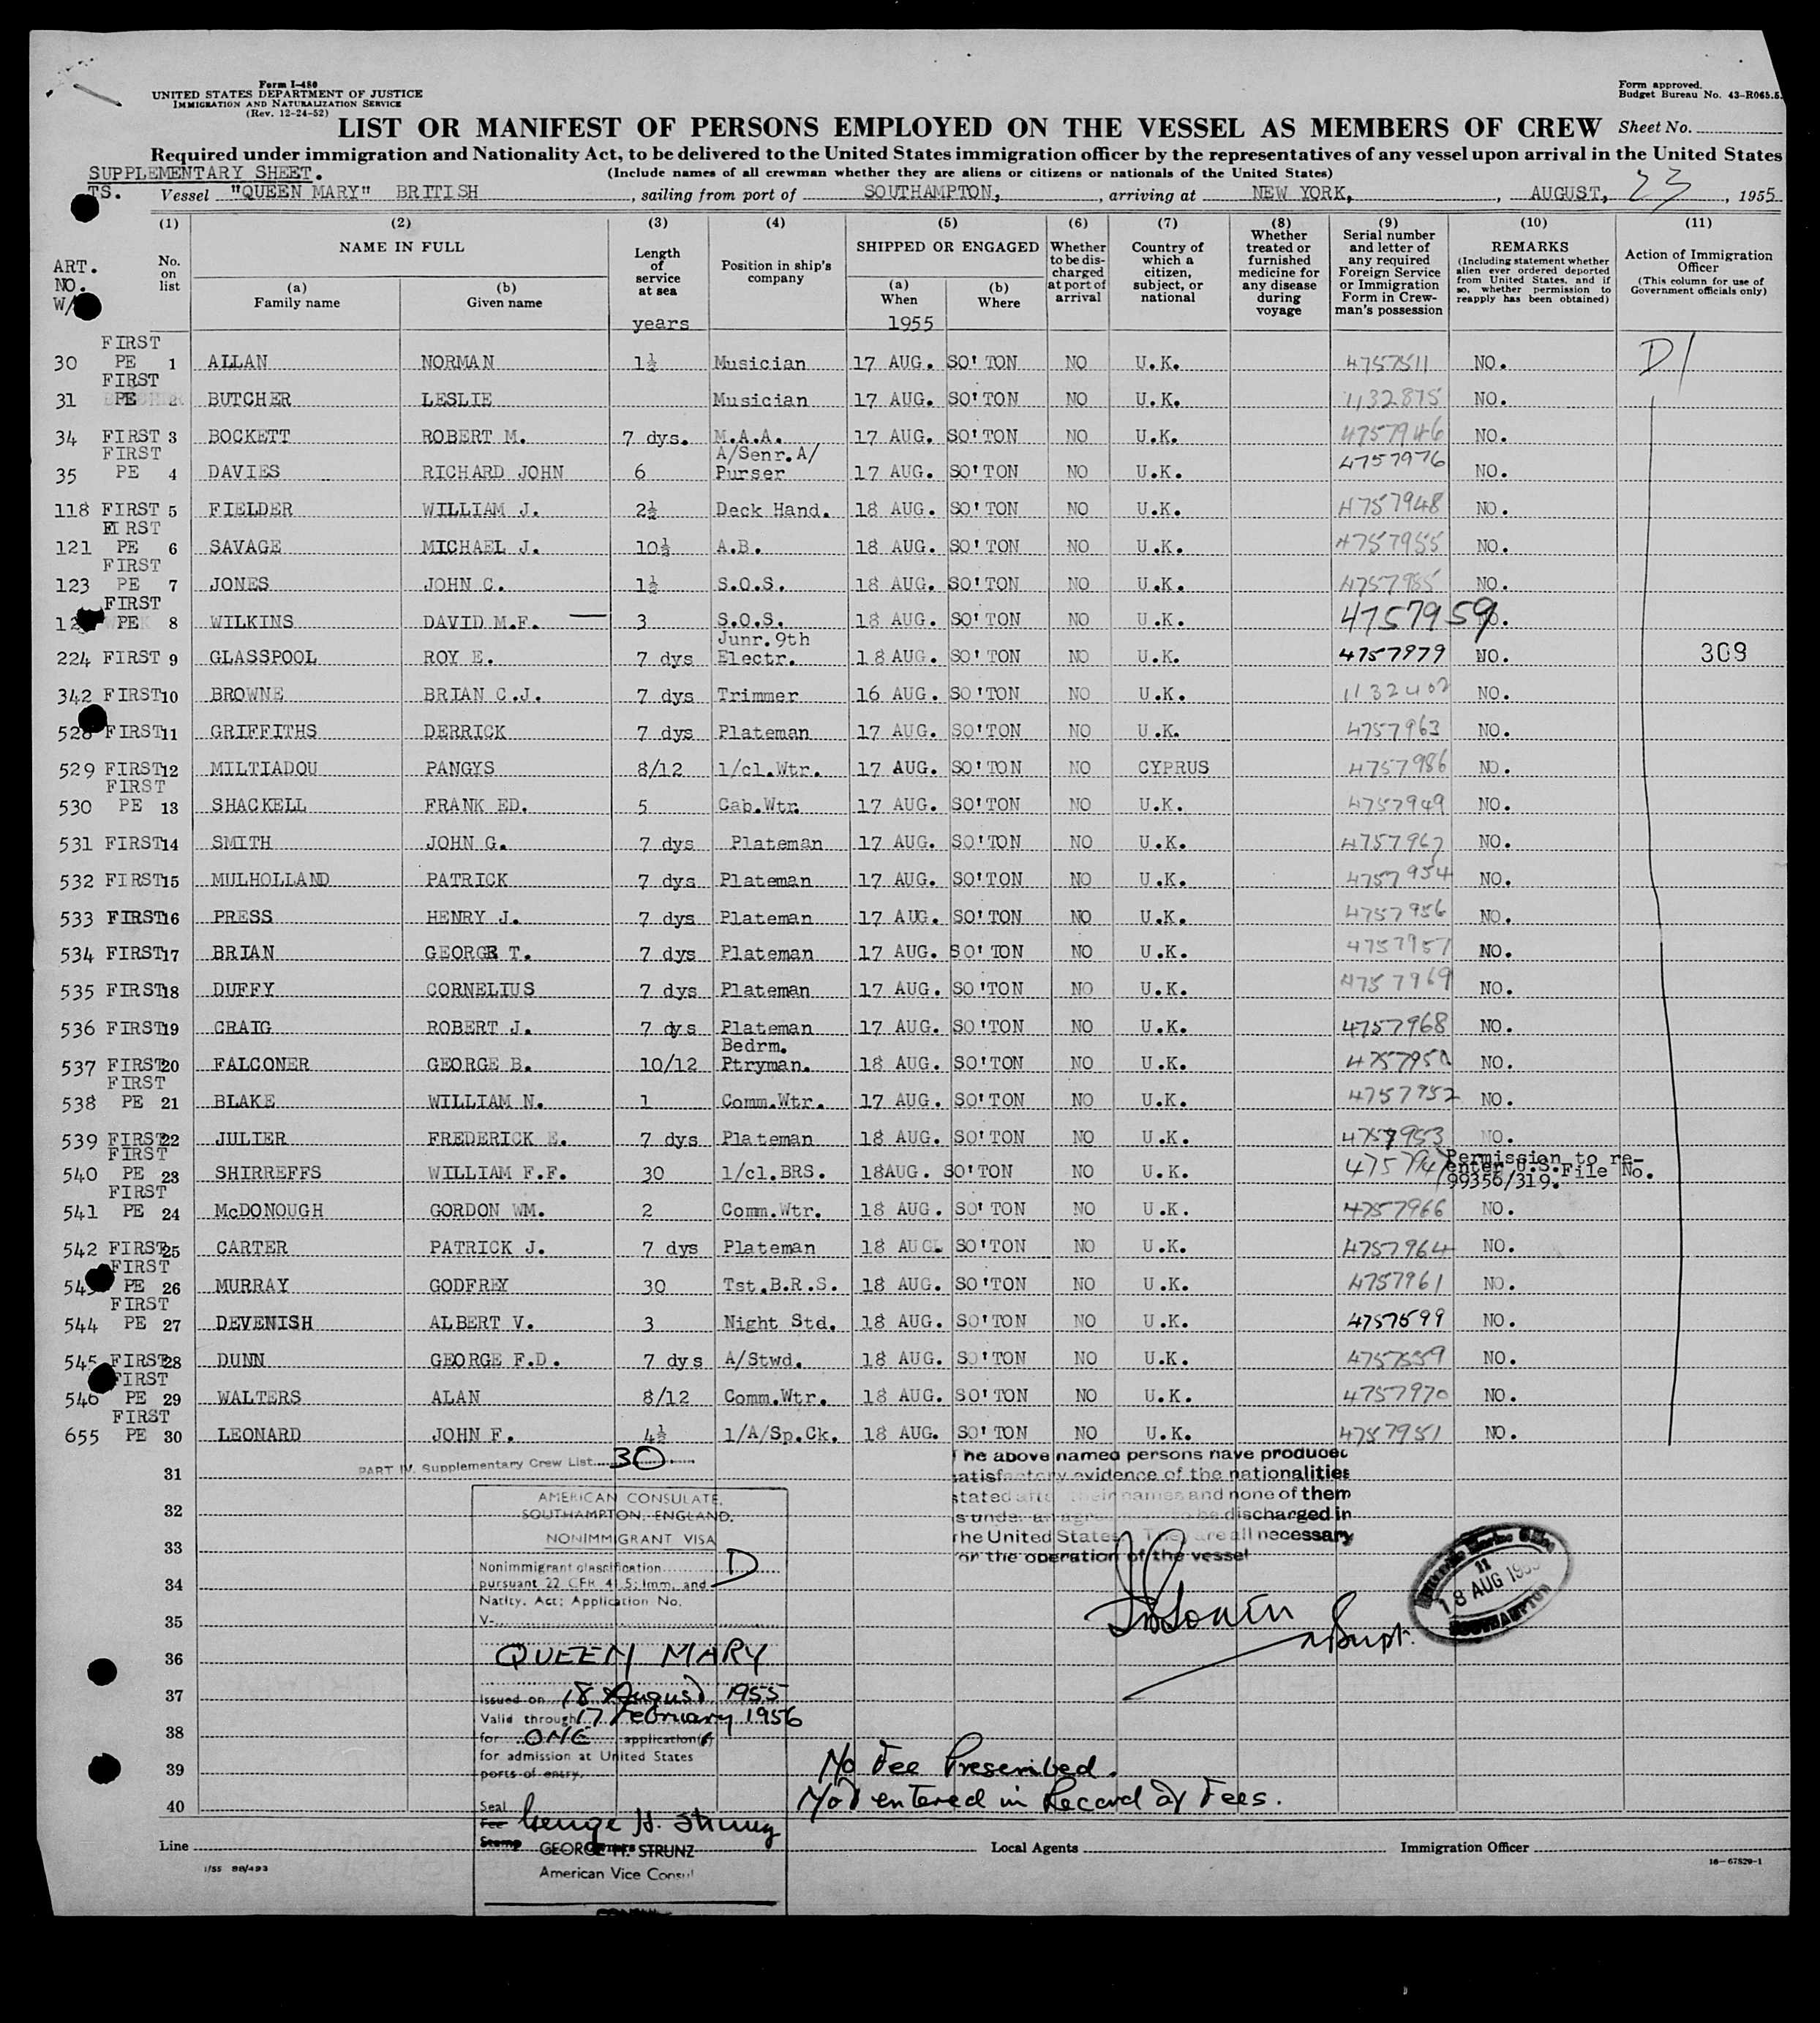 Form I-480
UNITED STATES DEPARTMENT OF JUSTICE
IMMIGRATION AND NATURALIZATION SERVICE
(Rev. 12-24-52)
Form approved.
Budget Bureau No. 43-R065.5.
LIST OR MANIFEST OF PERSONS EMPLOYED ON THE VESSEL AS MEMBERS OF CREW Sheet No.
Required under immigration and Nationality Act, to be delivered to the United States immigration officer by the representatives of any vessel upon arrival in the United States
SUPPLEMENTARY SHEET. (Include names of all crewman whether they are aliens or citizens or nationals of the United States)
TS. Vessel "QUEEN MARY" BRITISH, sailing from port of SOUTHAMPTON, arriving at NEW YORK, AUGUST, 23, 1955
(1) (2) (3) (4) (5) (6) (7) (8) (9) (10) (11)
ART. NO. No. on list
NAME IN FULL
(a) Family name
(b) Given name
Length of service at sea
years
Position in ship's company
SHIPPED OR ENGAGED
(a) When
1955
(b) Where
Whether to be discharged at port of arrival
Country of which a citizen, subject, or national
Whether treated or furnished medicine for any disease during voyage
Serial number and letter of any required Foreign Service or Immigration Form in Crewman's possession
REMARKS
(Including statement whether alien ever ordered deported from United States, and if so, whether permission to reapply has been obtained)
Action of Immigration Officer
(This column for use of Government officials only)
30 FIRST PE 1 ALLAN NORMAN 1½ Musician 17 AUG. SO'TON NO U.K. 4757511 NO. D/
31 FIRST PE BUTCHER LESLIE Musician 17 AUG. SO'TON NO U.K. 1132875 NO.
34 FIRST 3 BOCKETT ROBERT M. 7 dys. M.A.A. 17 AUG. SO'TON NO U.K. 4757946 NO.
35 FIRST PE 4 DAVIES RICHARD JOHN 6 A/Senr.A/ Purser 17 AUG. SO'TON NO U.K. 4757976 NO.
118 FIRST 5 FIELDER WILLIAM J. 2½ Deck Hand. 18 AUG. SO'TON NO U.K. 4757948 NO.
121 FIRST PE 6 SAVAGE MICHAEL J. 10½ A.B. 18 AUG. SO'TON NO U.K. 4757955 NO.
123 FIRST PE 7 JONES JOHN C. 1½ S.O.S. 18 AUG. SO'TON NO U.K. 4757985 NO.
FIRST PE 8 WILKINS DAVID M.F. 3 S.O.S. 18 AUG. SO'TON NO U.K. 4757959
224 FIRST 9 GLASSPOOL ROY E. 7 dys Junr.9th Electr. 18 AUG. SO'TON NO U.K. 4757979 NO. 309
342 FIRST 10 BROWNE BRIAN C.J. 7 dys Trimmer 16 AUG. SO'TON NO U.K. 1132402 NO.
528 FIRST 11 GRIFFITHS DERRICK 7 dys Plateman 17 AUG. SO'TON NO U.K. 4757963 NO.
529 FIRST 12 MILTIADOU PANGYS 8/12 1/cl.Wtr. 17 AUG. SO'TON NO CYPRUS 4757986 NO.
530 FIRST PE 13 SHACKELL FRANK ED. 5 Cab.Wtr. 17 AUG. SO'TON NO U.K. 4757949 NO.
531 FIRST 14 SMITH JOHN G. 7 dys Plateman 17 AUG. SO'TON NO U.K. 4757967 NO.
532 FIRST 15 MULHOLLAND PATRICK 7 dys Plateman 17 AUG. SO'TON NO U.K. 4757954 NO.
533 FIRST 16 PRESS HENRY J. 7 dys Plateman 17 AUG. SO'TON NO U.K. 4757956 NO.
534 FIRST 17 BRIAN GEORGE T. 7 dys Plateman 17 AUG. SO'TON NO U.K. 4757957 NO.
535 FIRST 18 DUFFY CORNELIUS 7 dys Plateman 17 AUG. SO'TON NO U.K. 4757969 NO.
536 FIRST 19 CRAIG ROBERT J. 7 dys Plateman 17 AUG. SO'TON NO U.K. 4757968 NO.
537 FIRST 20 FALCONER GEORGE B. 10/12 Bedrm. Ptryman. 18 AUG. SO'TON NO U.K. 4757950 NO.
538 FIRST PE 21 BLAKE WILLIAM N. 1 Comm.Wtr. 17 AUG. SO'TON NO U.K. 4757952 NO.
539 FIRST 22 JULIER FREDERICK E. 7 dys Plateman 18 AUG. SO'TON NO U.K. 4757953 NO.
540 FIRST PE 23 SHIRREFFS WILLIAM F.F. 30 1/cl.BRS. 18AUG. SO'TON NO U.K. Permission to re-enter U.S. File No. 99356/319.
541 FIRST PE 24 McDONOUGH GORDON WM. 2 Comm.Wtr. 18 AUG. SO'TON NO U.K. 4757966 NO.
542 FIRST 25 CARTER PATRICK J. 7 dys Plateman 18 AUG. SO'TON NO U.K. 4757964 NO.
FIRST PE 26 MURRAY GODFREY 30 Tst.B.R.S. 18 AUG. SO'TON NO U.K. 4757961 NO.
544 FIRST PE 27 DEVENISH ALBERT V. 3 Night Std. 18 AUG. SO'TON NO U.K. 4757599 NO.
545 FIRST 28 DUNN GEORGE F.D. 7 dys A/Stwd. 18 AUG. SO'TON NO U.K. 4757559 NO.
546 FIRST PE 29 WALTERS ALAN 8/12 Comm.Wtr. 18 AUG. SO'TON NO U.K. 4757970 NO.
655 FIRST PE 30 LEONARD JOHN F. 4½ 1/A/Sp.Ck. 18 AUG. SO'TON NO U.K. 4757951 NO.
31
32
33
34
35
36
37
38
39
40
PART IV. Supplementary Crew List 30
AMERICAN CONSULATE,
SOUTHAMPTON, ENGLAND.
NONIMMIGRANT VISA
Nonimmigrant classification D
pursuant 22 CFR 41.5; Imm. and
Natlty. Act; Application No.
V-
QUEEN MARY
Issued on 18 August 1955
Valid through 17 February 1956
for ONE application(s)
for admission at United States
ports of entry.
Seal
Fee
Stamp
George H. Strunz
GEORGE H. STRUNZ
American Vice Consul
The above named persons have produced
satisfactory evidence of the nationalities
stated after their names and none of them
is under an agreement to be discharged in
the United States. They are all necessary
for the operation of the vessel
Supt.
18 AUG 195
SOUTHAMPTON
No Fee Prescribed.
Not entered in Record of Fees.
Line
Local Agents
Immigration Officer
1/55 88/493
16-67829-1